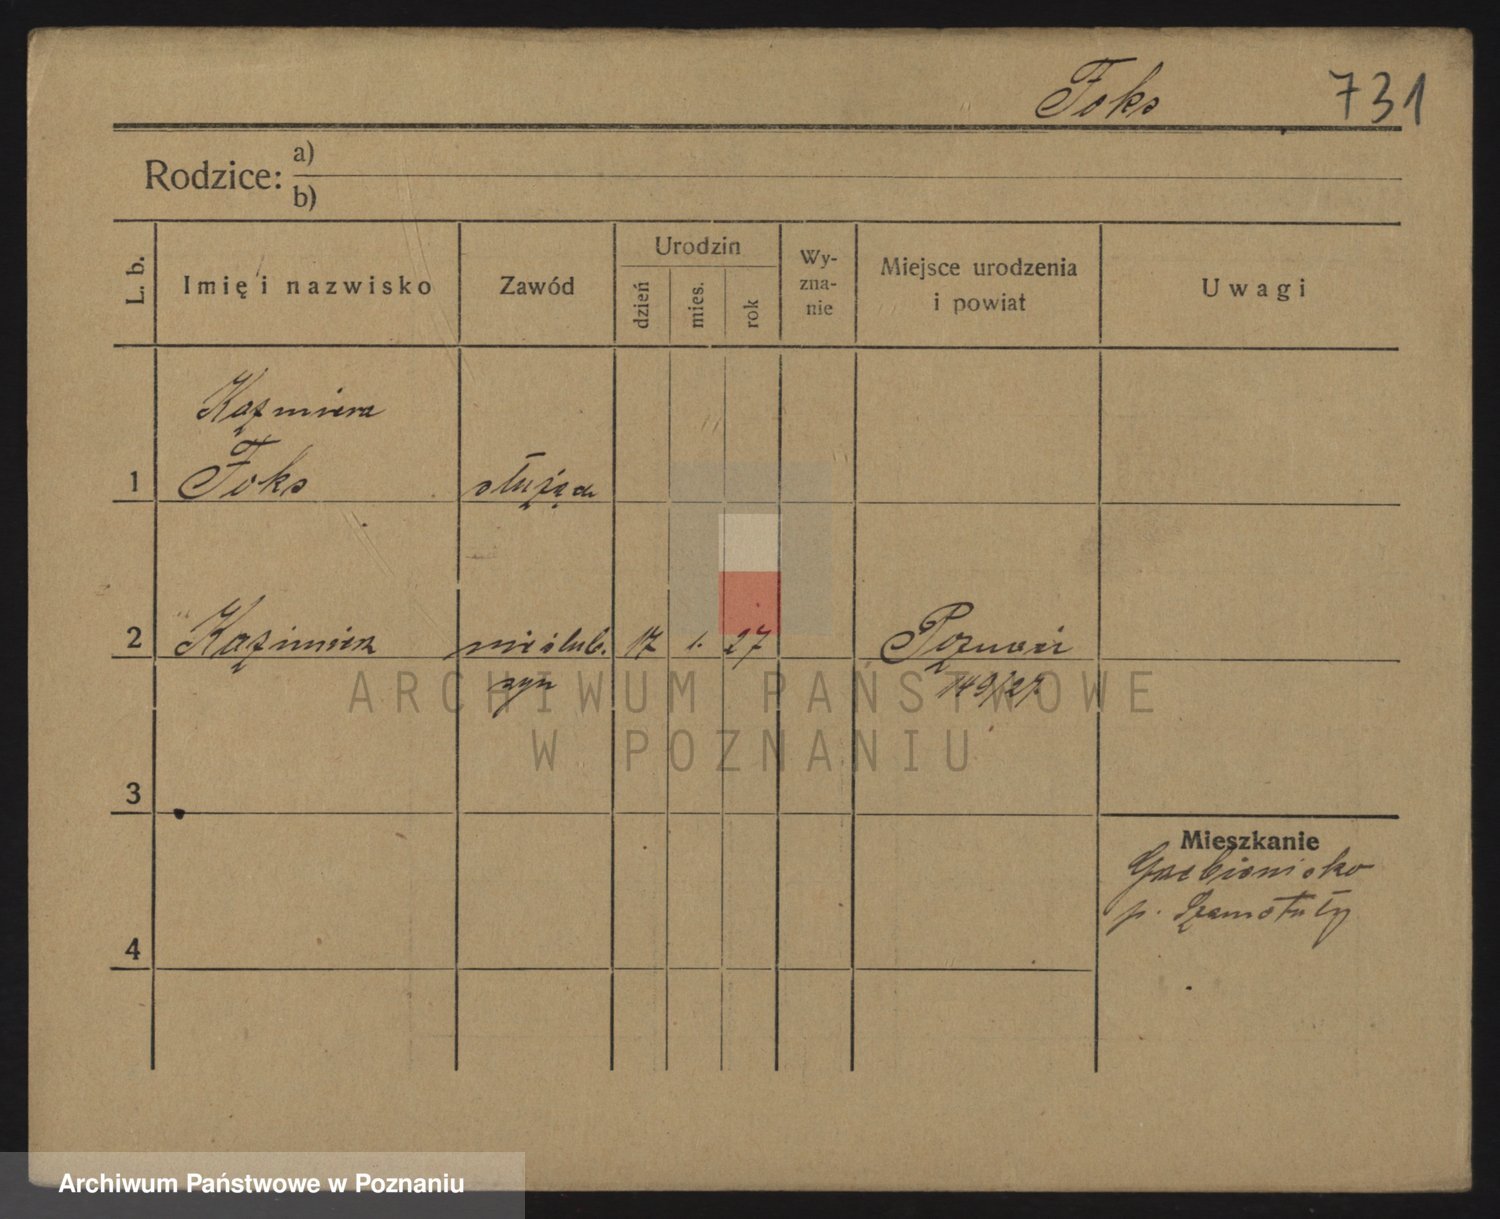 Foks 731
Rodzice: a)
b)
L. b. Imię i nazwisko Zawód Urodzin dzień mies. rok Wy-zna-nie Miejsce urodzenia i powiat Uwagi
Kazimiera
1 Foks służąca
2 Kazimierz nieślub. 17 1. 27 Poznań
syn 149/27
3
Mieszkanie
p. Szamotuły
4
ARCHIWUM PAŃSTWOWE
W POZNANIU
Archiwum Państwowe w Poznaniu